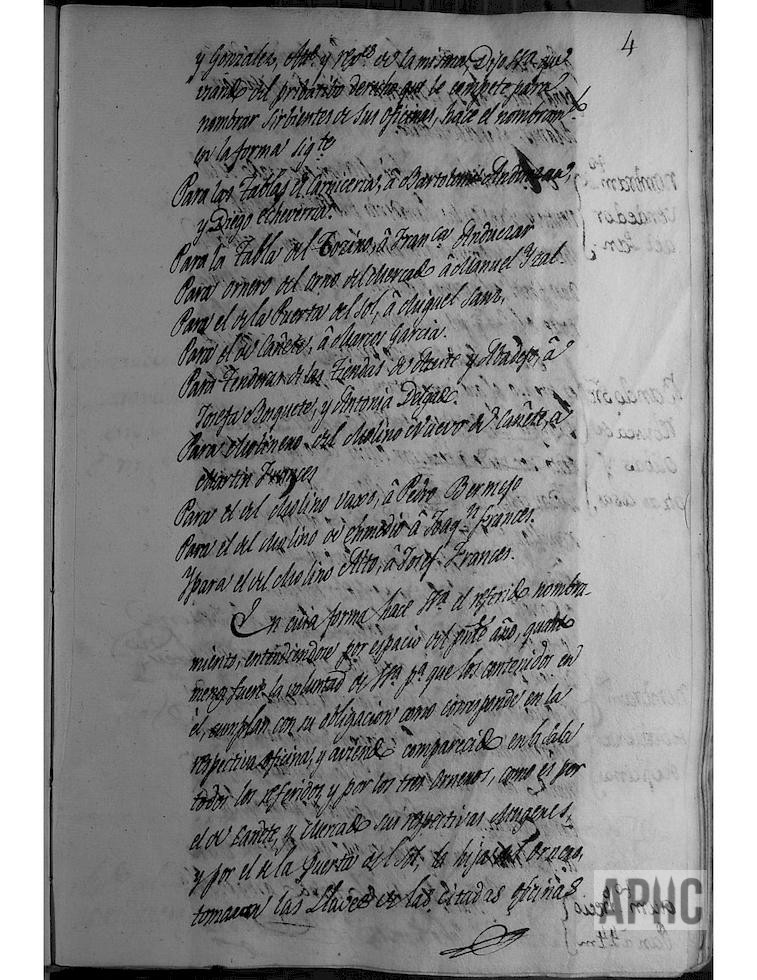 4
y Gonzalez, y de la misma: Dijo que
del pribatibo derecho que le compete para
nombrar Sirbientes de sus oficinas, hace el nombram.to
en la forma sig.te
Para las Tablas de Carniceria, â Bartolome
y Diego echeverria.
Para la Tabla del Tozino, â Fran.ca Anduezar
Para ornero del orno del Mercado â Manuel Yzal.
Para el de la Puerta del Sol, â Miguel Sanz,
Para el de Cañete, â Marcos Garcia.
Para Tenderas de las Tiendas de Azeite y Abadejo, â
Josefa Boquete, y Antonia Delgado.
Para Molinero del Molino Nuevo de Cañete, â
Martin Frances
Para el del Molino vaxo, â Pedro Bermejo
Para el del Molino de enmedio â Joaq.n Frances.
Y para el del Molino Alto, â Josef Frances.
En cuia forma hace el referido nombra-
miento, entendiendose por espacio del pnte año, quanto
menos fuere la voluntad de p.a que los contenidos en
el, cumplan con su obligacion como corresponde en la
respectiva oficina, y aviendo comparecido en la Sala
todos los referidos, y por los tres orneros, como es por
el de Cañete, y Mercado sus respectivas Mugeres,
y por el de la Puerta del Sol, la hija
tomaron las Llaves de las citadas oficinas
APHC